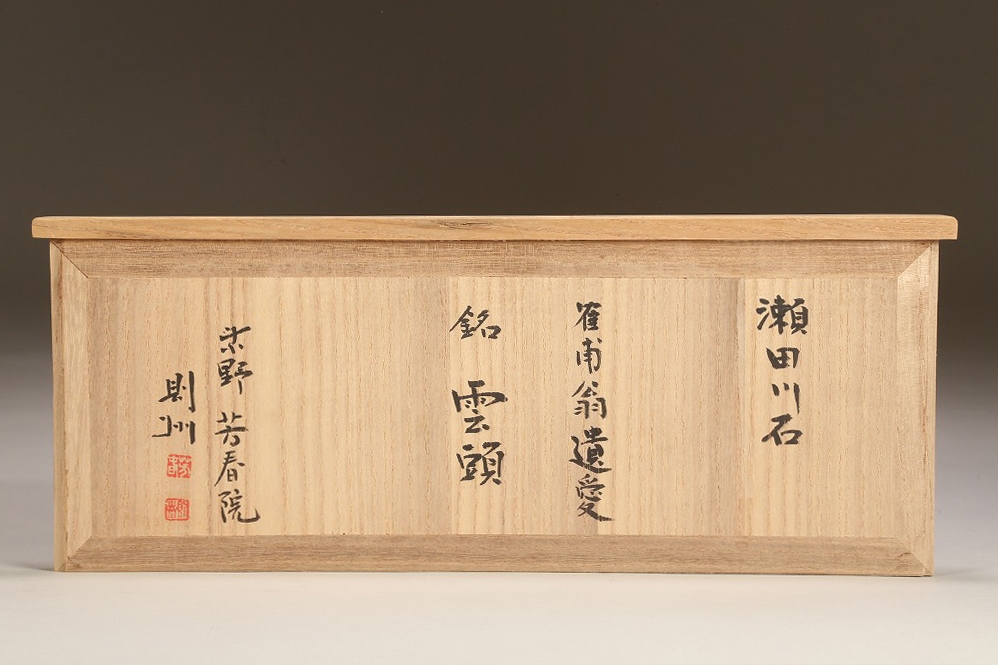 瀬田川石
隺甫翁遺愛
銘 雲頭
柴野 芳春院
則州